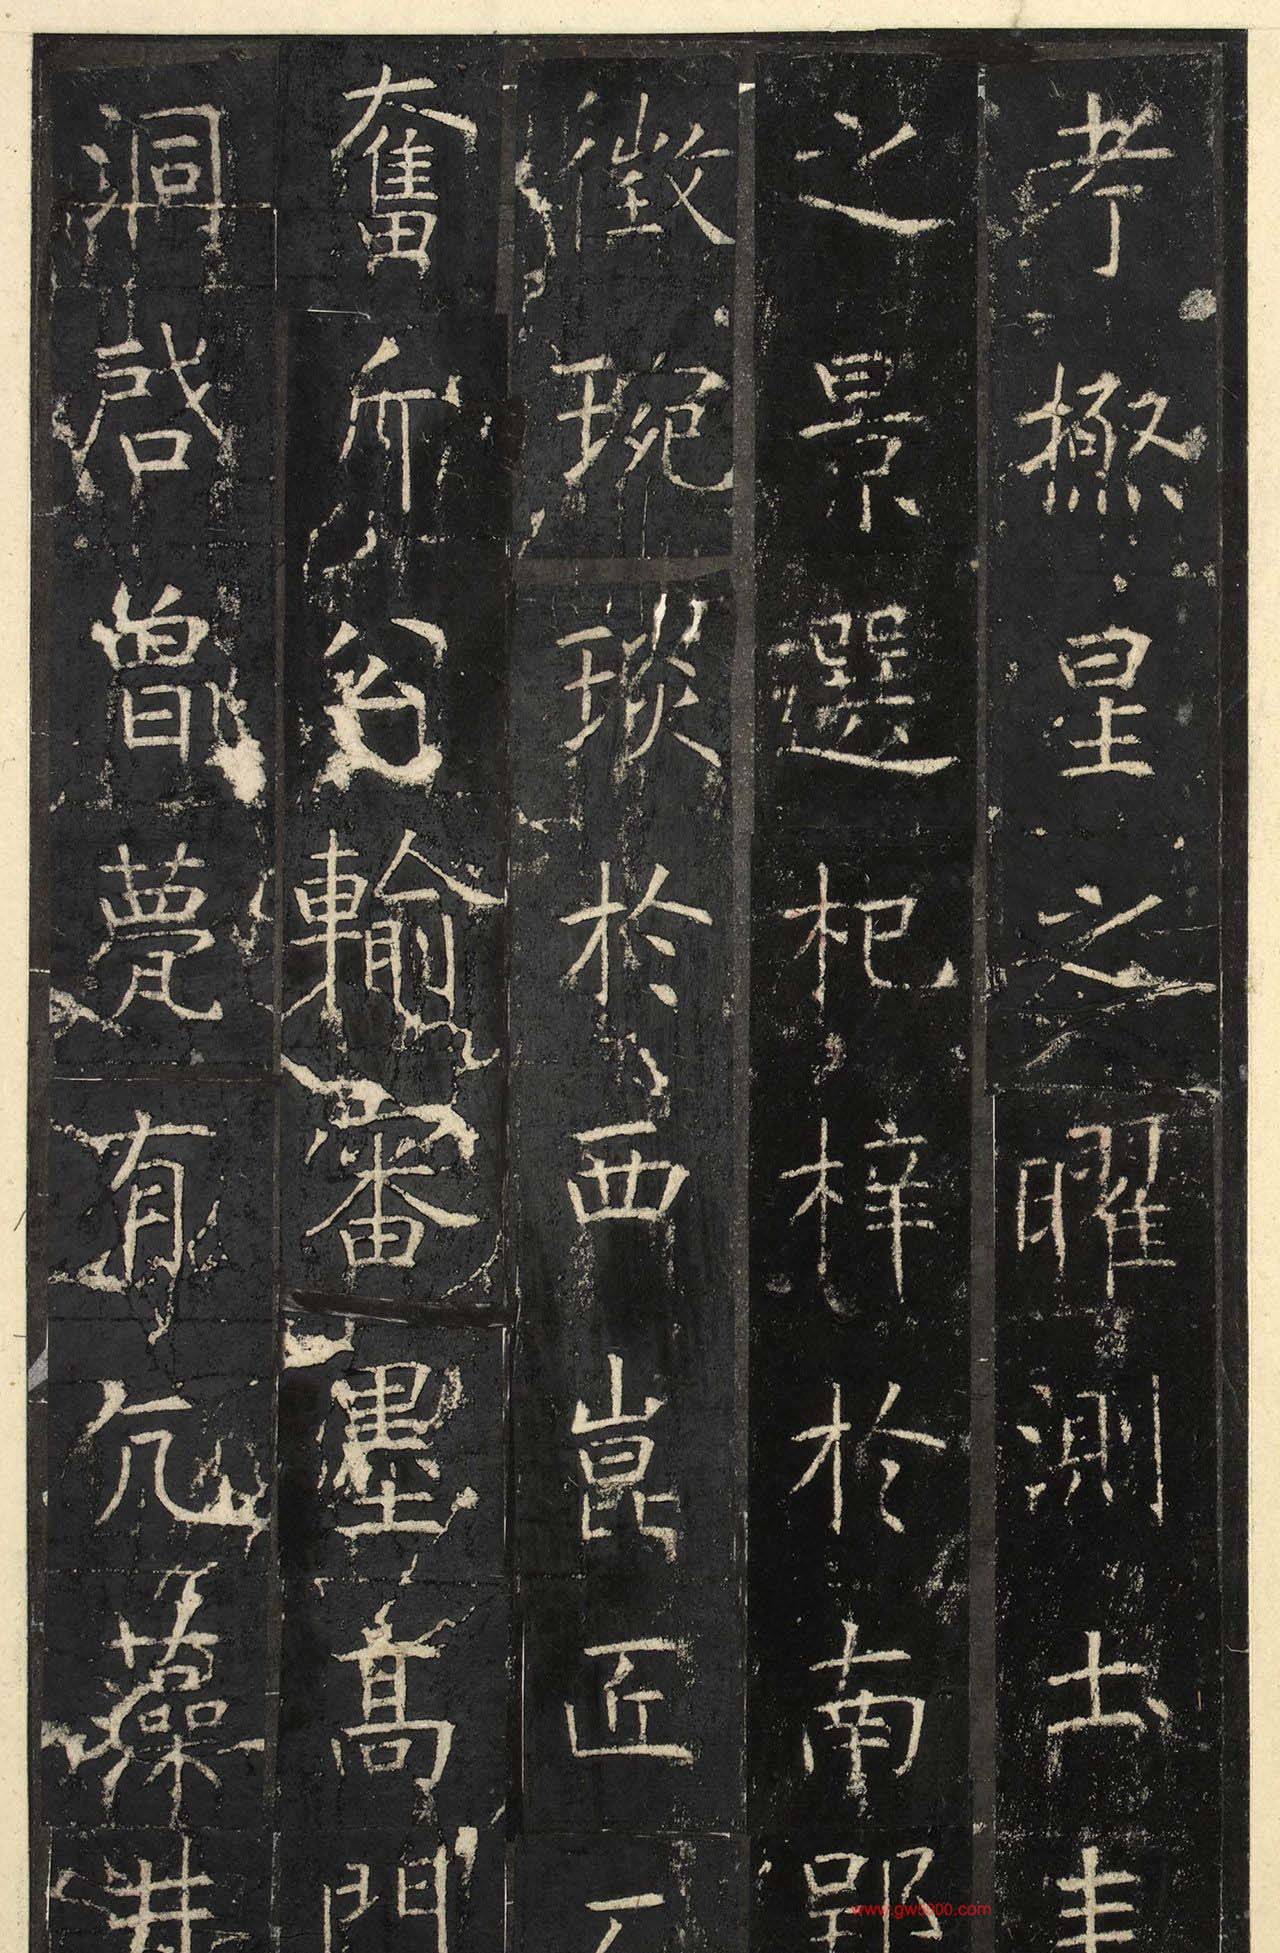 考極星之曜測土圭
之景選杞梓於南郢
徵琬琰於西崑匠石
奮斤公輸審墨髙門
洞啓曾甍有亢藻井
www.gw8800.com